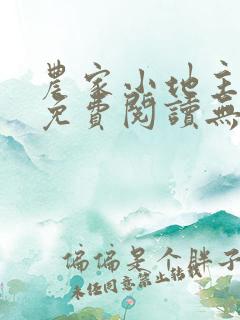 農家小地主
免費閱讀無
偏偏是个胖子
未经同意禁止转载